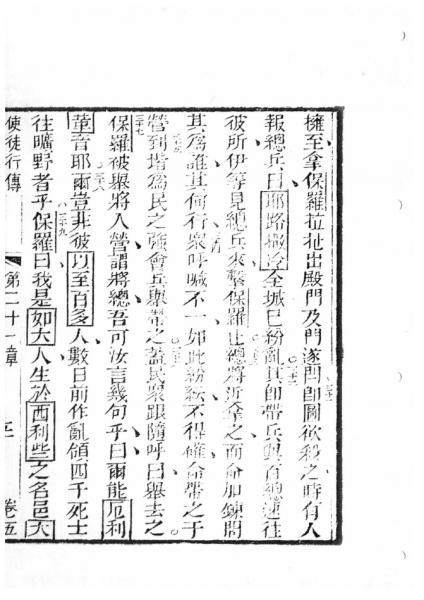 擁至拿保羅拉扯出殿門及門遂閂即圖欲殺之時有人
報總兵曰耶路撒冷全城已紛亂其即帶兵與百總速往
彼所伊等見總兵來擊保羅止總將近拿之而命加鍊問
其為誰其何行衆呼喊不一如此紛紜不得確命帶之于
營到堦為民之強會兵舉帶之蓋民衆跟隨呼曰舉去之
保羅被舉將入營謂將總吾可汝言幾句乎曰爾能厄利
童音耶爾豈非彼以至百多人數日前作亂領四千死士
往曠野者乎保羅曰我是如大人生於西利些之名邑大
使徒行傳 第二十一章 卷五